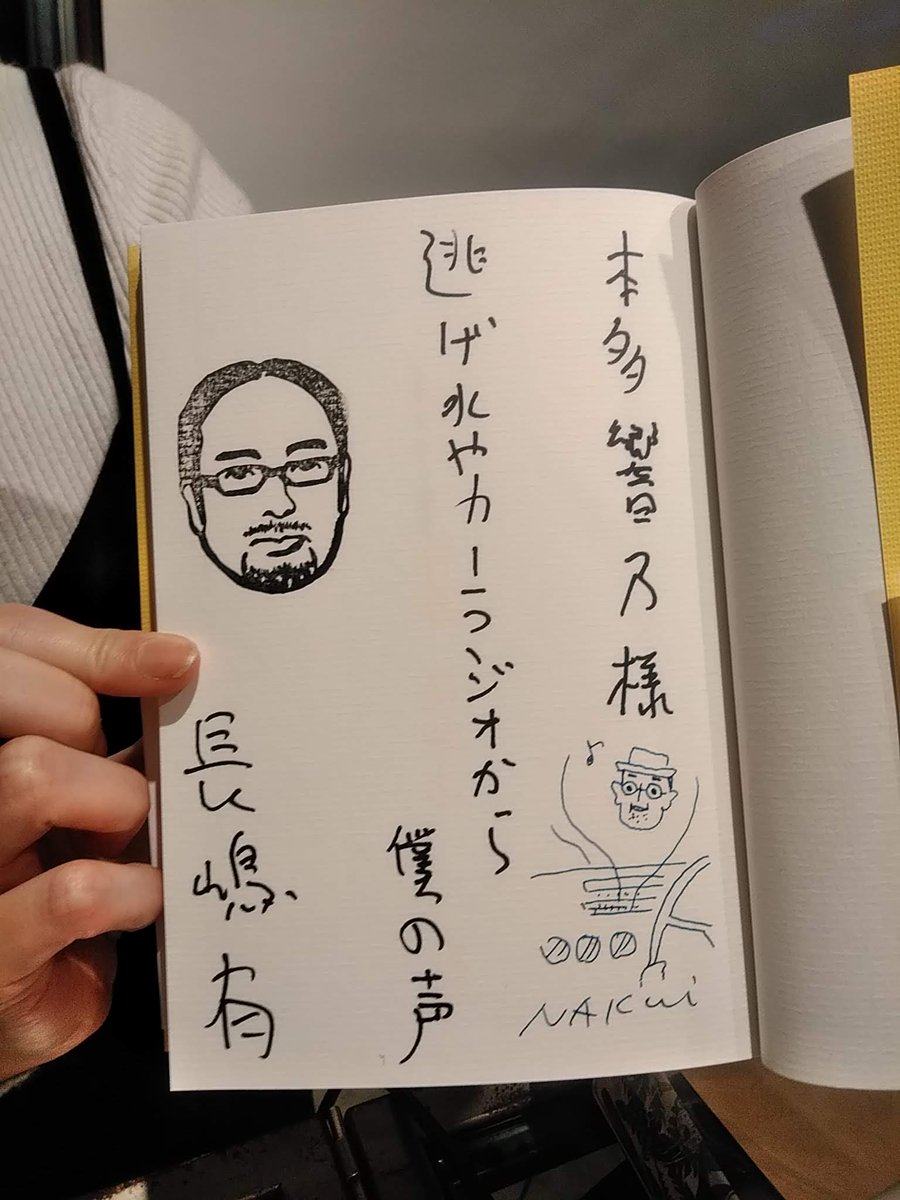 本多響乃様
逃げ水やカーラジオから
僕の声
長嶋有
NAKUI